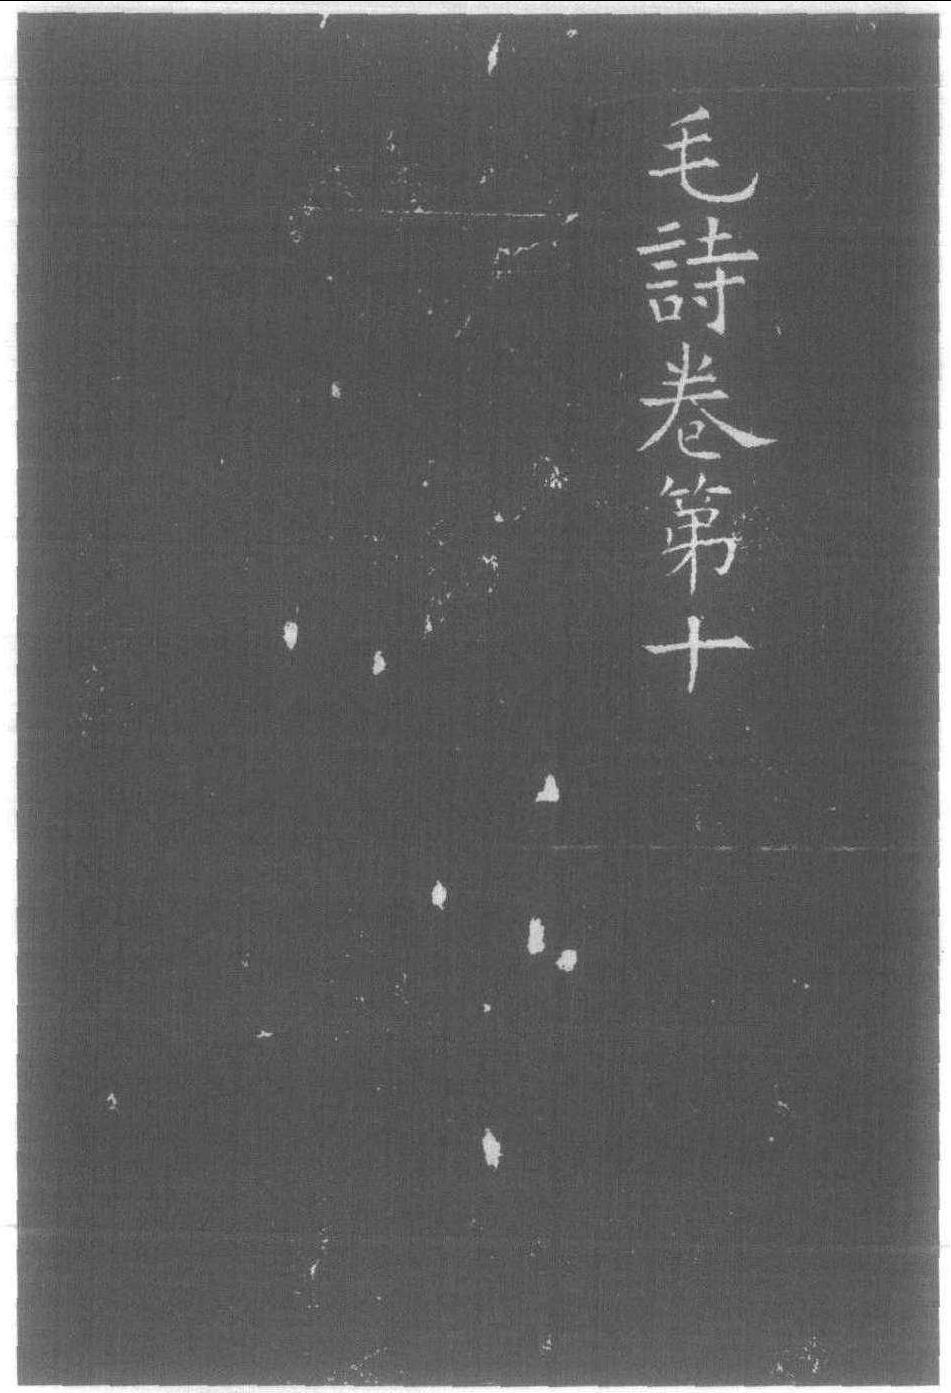 毛詩卷第十